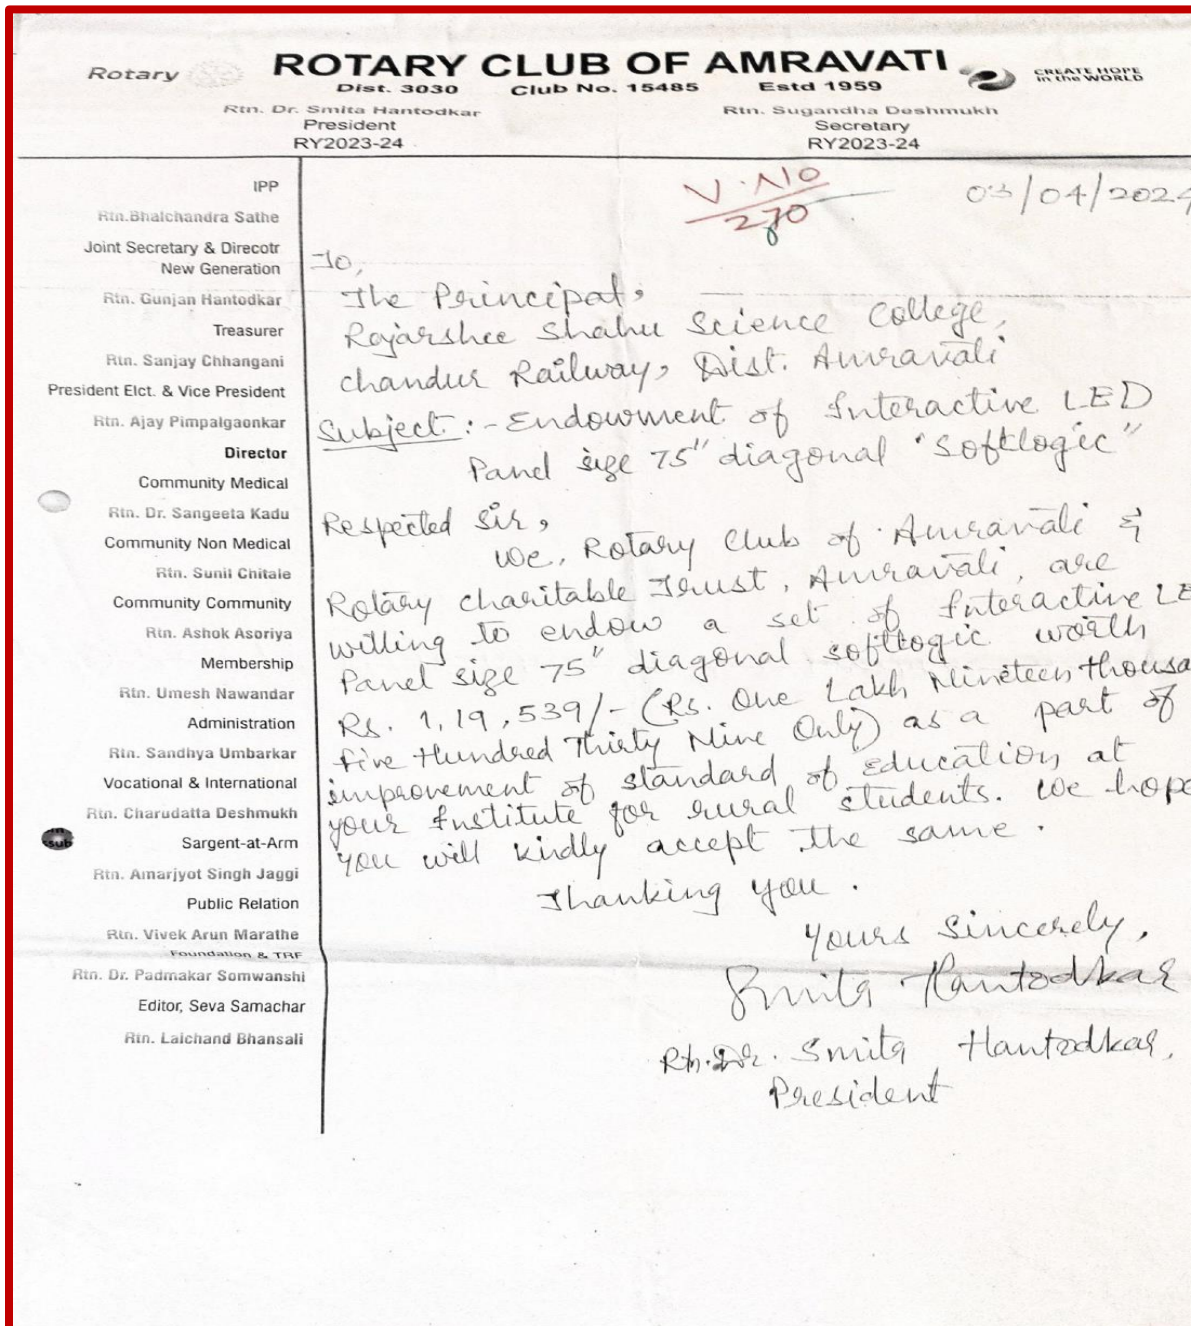 Rotary
ROTARY CLUB OF AMRAVATI
CREATE HOPE
in the WORLD
Dist. 3030 Club No. 15485 Estd 1959
Rtn. Dr. Smita Hantodkar
President
RY2023-24
Rtn. Sugandha Deshmukh
Secretary
RY2023-24
IPP
Rtn.Bhalchandra Sathe
Joint Secretary & Direcotr
New Generation
Rtn. Gunjan Hantodkar
Treasurer
Rtn. Sanjay Chhangani
President Elct. & Vice President
Rtn. Ajay Pimpalgaonkar
Director
Community Medical
Rtn. Dr. Sangeeta Kadu
Community Non Medical
Rtn. Sunil Chitale
Community Community
Rtn. Ashok Asoriya
Membership
Rtn. Umesh Nawandar
Administration
Rtn. Sandhya Umbarkar
Vocational & International
Rtn. Charudatta Deshmukh
Sargent-at-Arm
Rtn. Amarjyot Singh Jaggi
Public Relation
Rtn. Vivek Arun Marathe
Foundation & TRF
Rtn. Dr. Padmakar Somwanshi
Editor, Seva Samachar
Rtn. Lalchand Bhansali
V.No
270
03/04/2024
To,
The Principal,
Rajarshee Shahu Science College,
Chandur Railway, Dist. Amravati
Subject :- Endowment of Interactive LED
Panel size 75" diagonal "Softlogic"
Respected Sir,
We, Rotary Club of Amravati &
Rotary Charitable Trust, Amravati, are
willing to endow a set of Interactive LE
Panel size 75" diagonal softlogic worth
Rs. 1,19,539/- (Rs. One Lakh Nineteen thousa
Five Hundred Thirty Nine Only) as a part of
improvement of standard of education at
your Institute for rural students. We hope
you will kindly accept the same.
Thanking you.
Yours Sincerely,
Smita Hantodkar
Rtn. Dr. Smita Hantodkar,
President